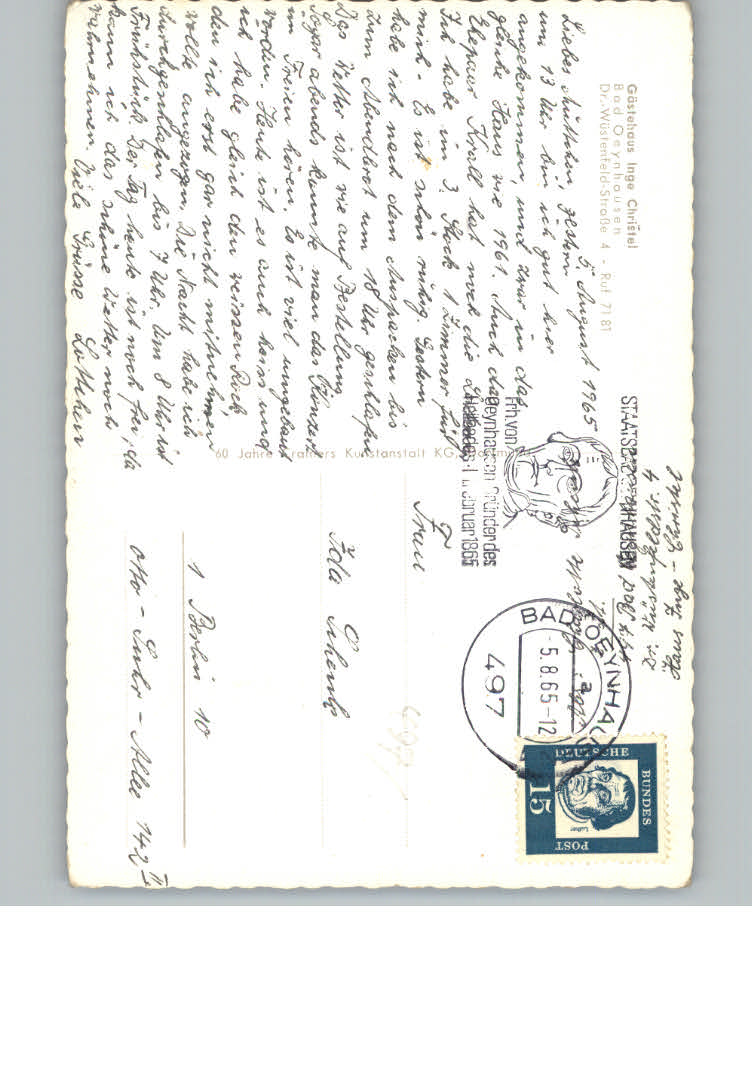 Gästehaus Inge Christel
Bad Oeynhausen
Dr.-Wüstenfeld-Straße 4 - Ruf 71 81
5. August 1965
Liebes Muttchen! Gestern
um 13 Uhr bin ich gut hier
angekommen, und zwar in das
gleiche Haus wie 1961. Auch das
Ehepaar Krall hat noch die
Ich habe im 3. Stock 1 Zimmer für
mich. Es ist schön ruhig. Gestern
habe ich nach dem Auspacken bis
zum Abendbrot um 18 Uhr geschlafen
Das Wetter ist wie auf Bestellung
Sogar abends konnte man das Konzert
im Freien hören. Es ist viel umgebaut
worden. Heute ist es auch heiss und
ich habe gleich den weissen Rock,
den ich erst gar nicht mitnehmen
wollte angezogen. Die Nacht habe ich
durchgeschlafen bis 7 Uhr. Um 8 Uhr ist
Frühstück. Der Tag heute ist noch frei, da
kann ich das schöne Wetter noch
wahrnehmen. Viele Grüsse
60 Jahre Krämers Kunstanstalt KG, Dortmund
STAATSBAD OEYNHAUSEN
Frh. von
Oeynhausen Gründer des
Heilbades † 1. Februar 1865
Haus Inge Christel
Dr. Wüstenfeldstr.
4
BAD OEYNHAUSEN
a
-5.8.65-12
497
DEUTSCHE
BUNDES
POST
15
Luther
Frau
Ida
1 Berlin 10
Otto-Suhr-Allee 142 II